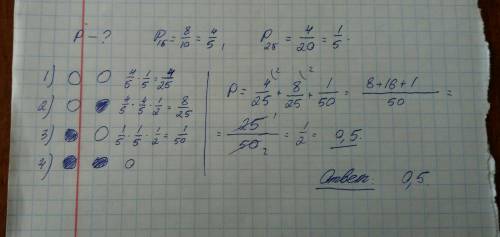 P - ? P₁б = 8/10 = 4/5, P₂б = 4/20 = 1/5.
1) ○ ○ 4/5 · 1/5 = 4/25
2) ○ ● 4/5 · 4/5 · 1/2 = 8/25
3) ● ○ 1/5 · 1/5 · 1/2 = 1/50
4) ● ● 0
P = 4/25 (² + 8/25 (² + 1/50 = 8+16+1/50 =
= 25 ¹/50 ₂ = 1/2 = 0,5.
Ответ: 0,5